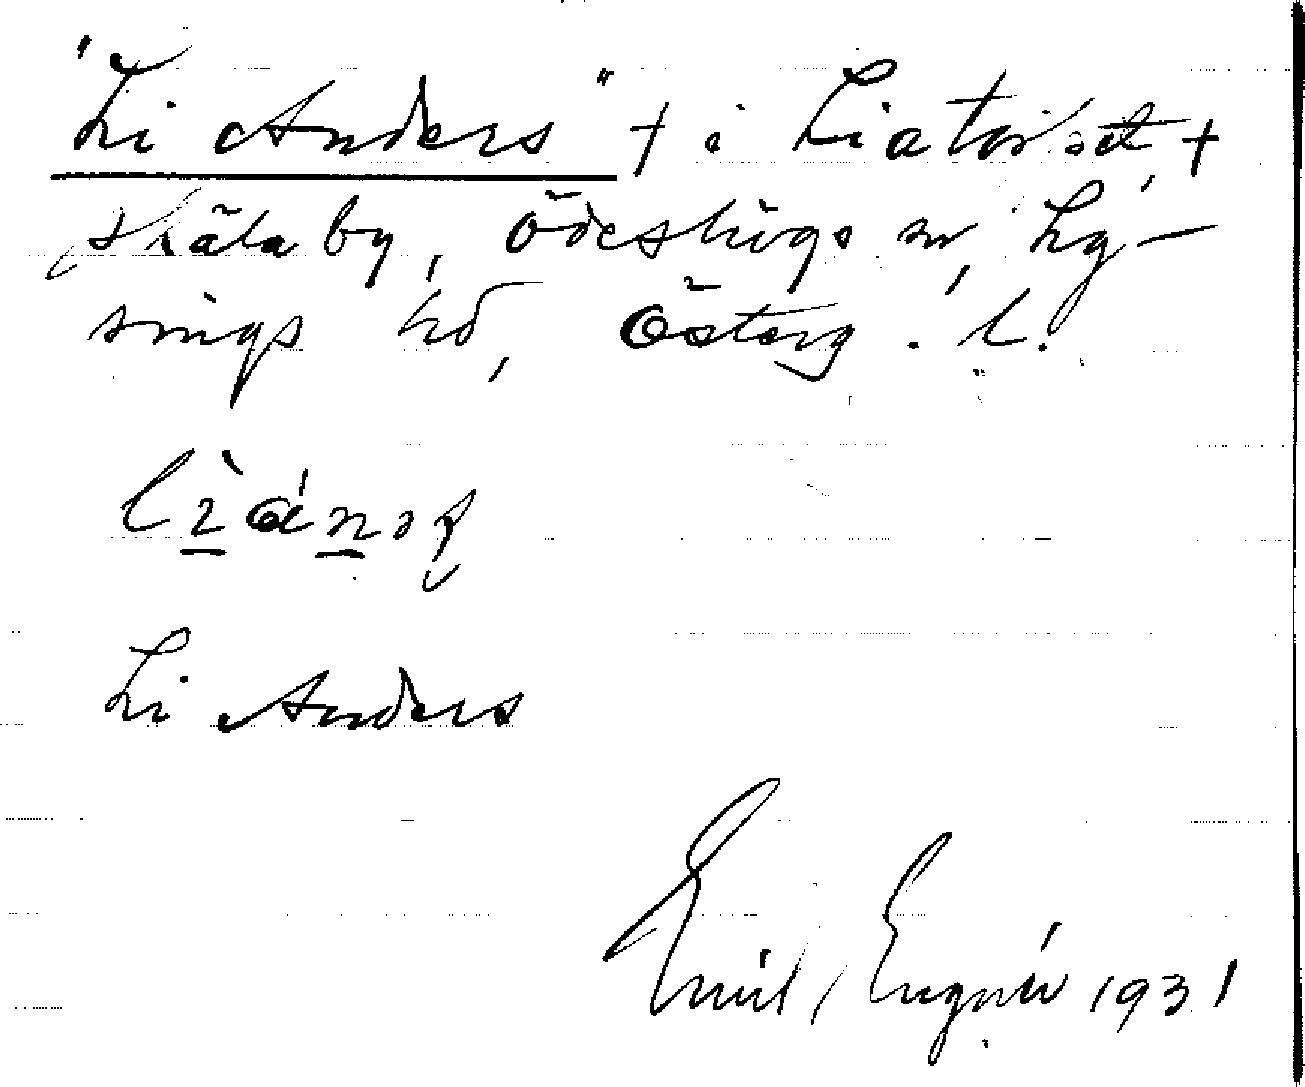 "Li Anders" † i Liatorpet †
Skäla by, Ödeshögs sn, Ly-
sings hd, Österg. l.
Li Anders
Emil Engnér 1931